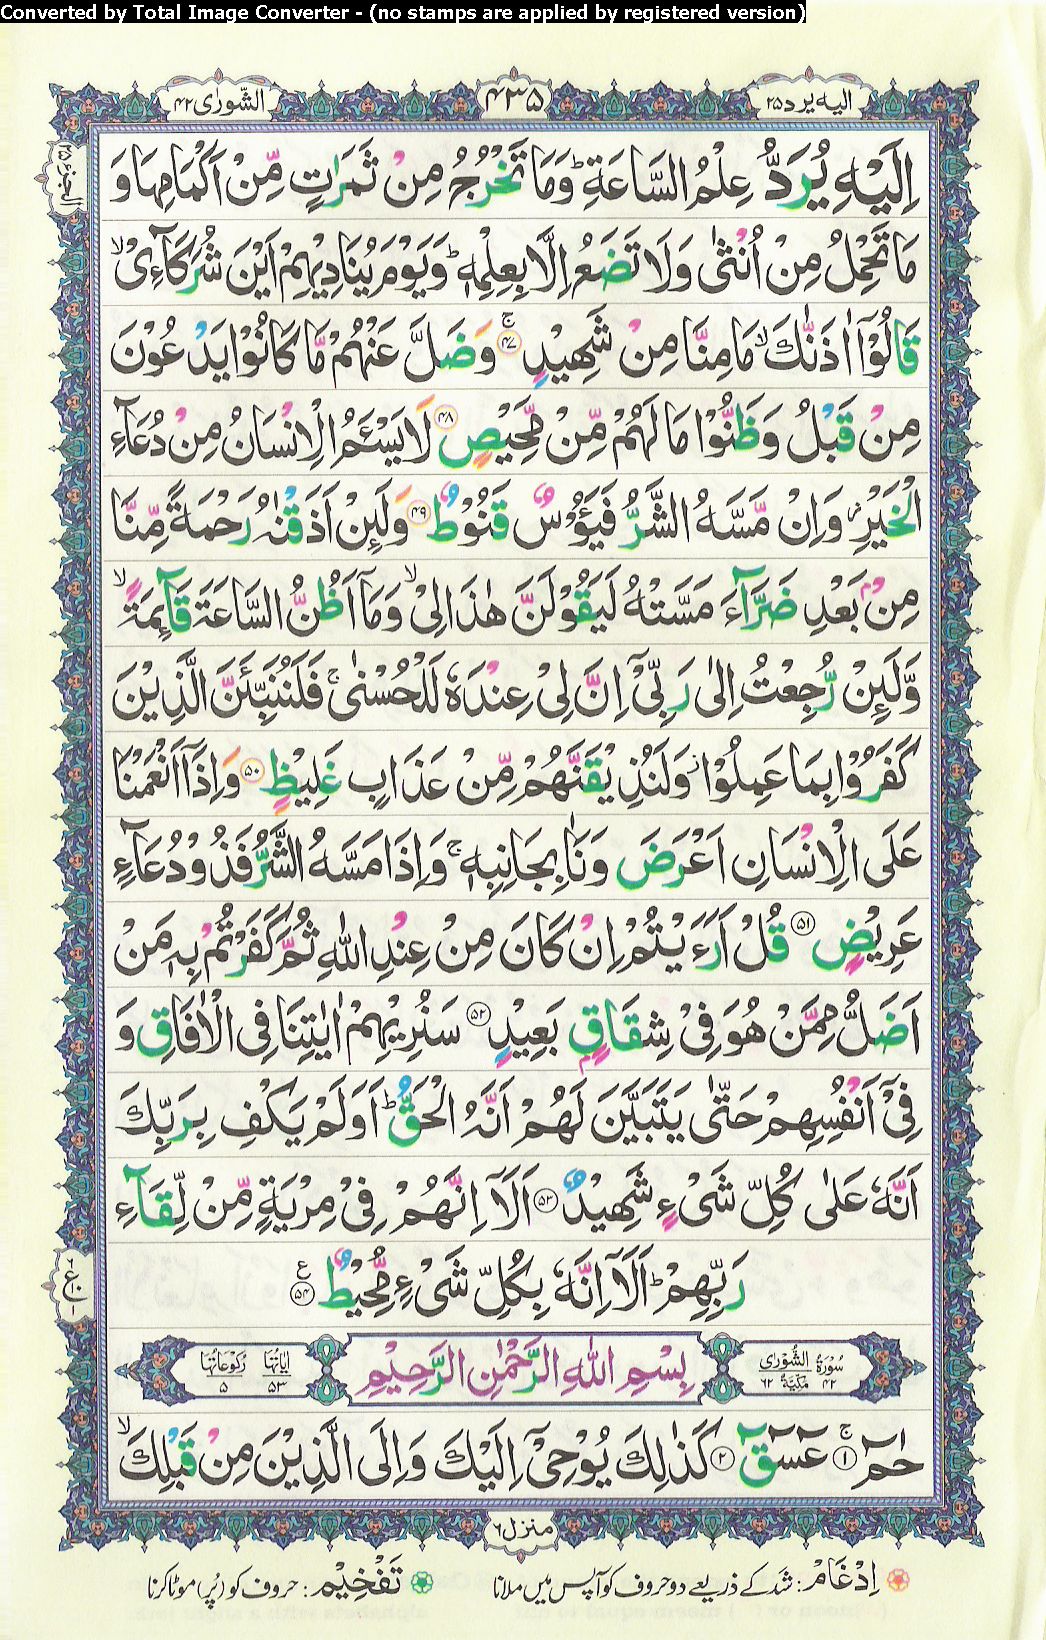 Converted by Total Image Converter - (no stamps are applied by registered version)
الیه یرد ۲۵
۴۳۵
الشّورٰی ۴۲
اِلَيْهِ يُرَدُّ عِلْمُ السَّاعَةِ ؕ وَمَا تَخْرُجُ مِنْ ثَمَرٰتٍ مِّنْ اَكْمَامِهَا وَ
مَا تَحْمِلُ مِنْ اُنْثٰى وَلَا تَضَعُ اِلَّا بِعِلْمِهٖ ؕ وَيَوْمَ يُنَادِيْهِمْ اَيْنَ شُرَكَآءِيْ ۙ
قَالُوْۤا اٰذَنّٰكَ ۙ مَا مِنَّا مِنْ شَهِيْدٍ ۚ ﴿۴۷﴾ وَضَلَّ عَنْهُمْ مَّا كَانُوْا يَدْعُوْنَ
مِنْ قَبْلُ وَظَنُّوْا مَا لَهُمْ مِّنْ مَّحِيْصٍ ﴿۴۸﴾ لَا يَسْـَٔمُ الْاِنْسَانُ مِنْ دُعَآءِ
الْخَيْرِ ز وَاِنْ مَّسَّهُ الشَّرُّ فَيَـُٔوْسٌ قَنُوْطٌ ﴿۴۹﴾ وَلَئِنْ اَذَقْنٰهُ رَحْمَةً مِّنَّا
مِنْۢ بَعْدِ ضَرَّآءَ مَسَّتْهُ لَيَقُوْلَنَّ هٰذَا لِيْ ۙ وَمَاۤ اَظُنُّ السَّاعَةَ قَآئِمَةً ۙ
وَّلَئِنْ رُّجِعْتُ اِلٰى رَبِّيْۤ اِنَّ لِيْ عِنْدَهٗ لَلْحُسْنٰى ۚ فَلَنُنَبِّئَنَّ الَّذِيْنَ
كَفَرُوْا بِمَا عَمِلُوْا ز وَلَنُذِيْقَنَّهُمْ مِّنْ عَذَابٍ غَلِيْظٍ ﴿۵۰﴾ وَاِذَاۤ اَنْعَمْنَا
عَلَى الْاِنْسَانِ اَعْرَضَ وَنَاٰ بِجَانِبِهٖ ۚ وَاِذَا مَسَّهُ الشَّرُّ فَذُوْ دُعَآءٍ
عَرِيْضٍ ﴿۵۱﴾ قُلْ اَرَءَيْتُمْ اِنْ كَانَ مِنْ عِنْدِ اللّٰهِ ثُمَّ كَفَرْتُمْ بِهٖ مَنْ
اَضَلُّ مِمَّنْ هُوَ فِيْ شِقَاقٍۢ بَعِيْدٍ ﴿۵۲﴾ سَنُرِيْهِمْ اٰيٰتِنَا فِي الْاٰفَاقِ وَ
فِيْۤ اَنْفُسِهِمْ حَتّٰى يَتَبَيَّنَ لَهُمْ اَنَّهُ الْحَقُّ ؕ اَوَلَمْ يَكْفِ بِرَبِّكَ
اَنَّهٗ عَلٰى كُلِّ شَيْءٍ شَهِيْدٌ ﴿۵۳﴾ اَلَاۤ اِنَّهُمْ فِيْ مِرْيَةٍ مِّنْ لِّقَآءِ
رَبِّهِمْ ؕ اَلَاۤ اِنَّهٗ بِكُلِّ شَيْءٍ مُّحِيْطٌ ﴿۵۴﴾ ع
سُوْرَةُ الشُّوْرٰى ۴۲ مَكِّيَّةٌ ۶۲
بِسْمِ اللّٰهِ الرَّحْمٰنِ الرَّحِيْمِ
اٰيَاتُهَا ۵۳ رُكُوْعَاتُهَا ۵
حٰمٓ ۚ ﴿۱﴾ عٓسٓقٓ ﴿۲﴾ كَذٰلِكَ يُوْحِيْۤ اِلَيْكَ وَاِلَى الَّذِيْنَ مِنْ قَبْلِكَ ۙ
منزل ۶
اِدْغَامْ: شد کے ذریعے دو حروف کو آپس میں ملانا
تَفْخِیْمْ: حروف کو (پُر) موٹا کرنا